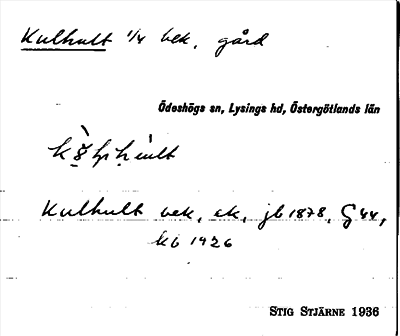 Kulhult 1/4 bek, gård
Ödeshögs sn, Lysings hd, Östergötlands län
Kulhult bek, ek, jb 1878, G 44,
kb 1926
STIG STJÄRNE 1936